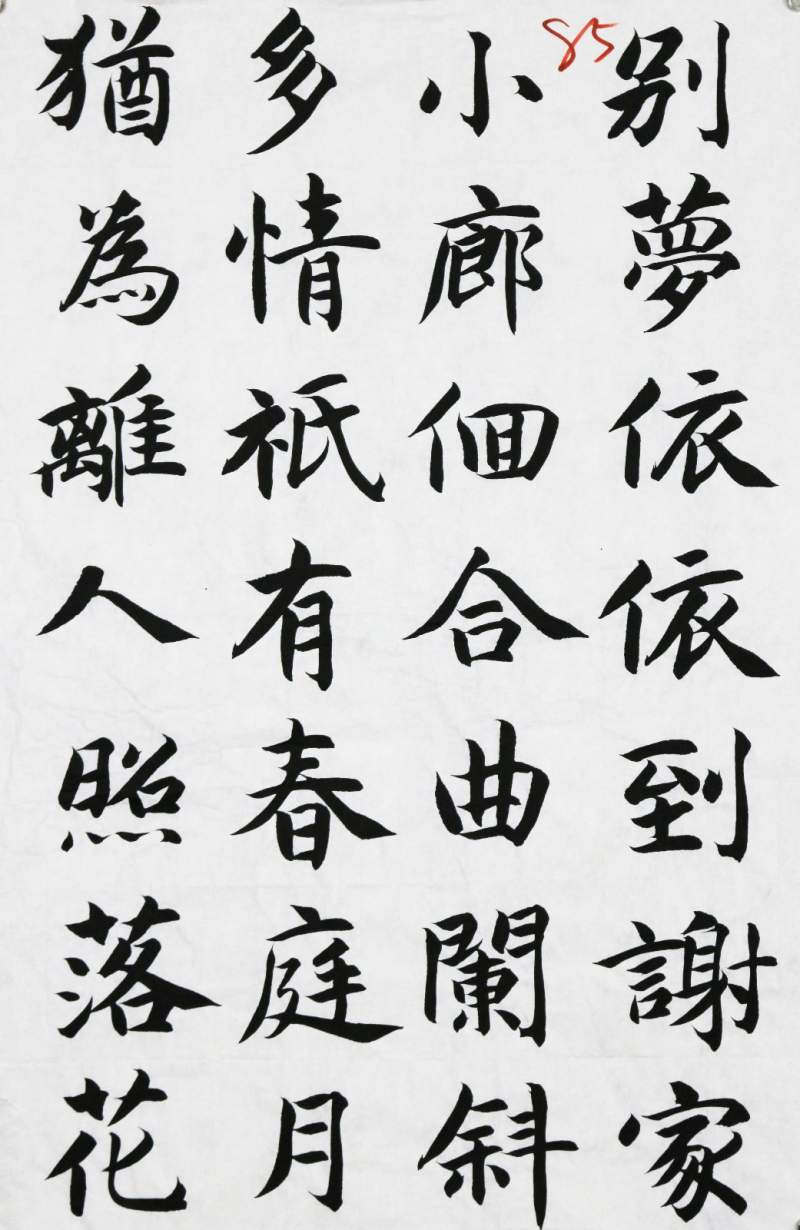 别夢依依到謝家
小廊佪合曲闌斜
多情祇有春庭月
猶為離人照落花
85